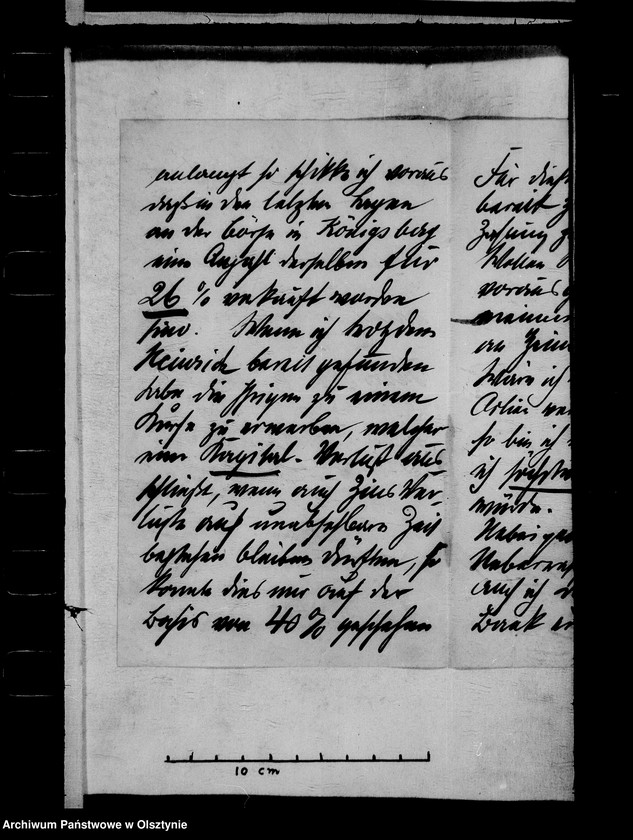 anlangt so schicke ich voraus
daß in den letzten Tagen
an der Börse in Königsberg
eine Anzahl derselben für
26 % verkauft worden
sind. Wenn ich trotzdem
Heinrich bereit gefunden
habe die Ihrigen zu einem
Kurse zu erwerben, welcher
einen Kapital-Verlust aus
schließt, wenn auch Zins Ver-
luste auf unabsehbare Zeit
bestehen bleiben dürften, so
konnte dies nur auf der
Basis von 40 % geschehen
Für dies
bereit z
Zahlung z
Wollen
voraus
meinen
an Hein
Wäre ich
Actien
so bin ich
ich
würde.
Uebrigen
auch ich
Bank
10 cm
Archiwum Państwowe w Olsztynie